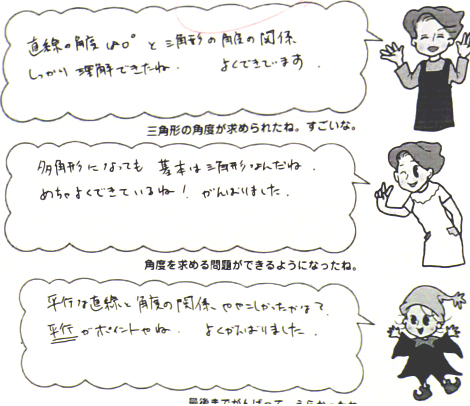 直線の角度 180° と三角形の角度の関係
しっかり理解できたね。 よくできています。
三角形の角度が求められたね。すごいな。
多角形になっても 基本は三角形なんだね。
めちゃよくできているね! がんばりました。
角度を求める問題ができるようになったね。
平行な直線と角度の関係、ややこしかったかな?
平行がポイントやね。 よくがんばりました。
最後までがんばって